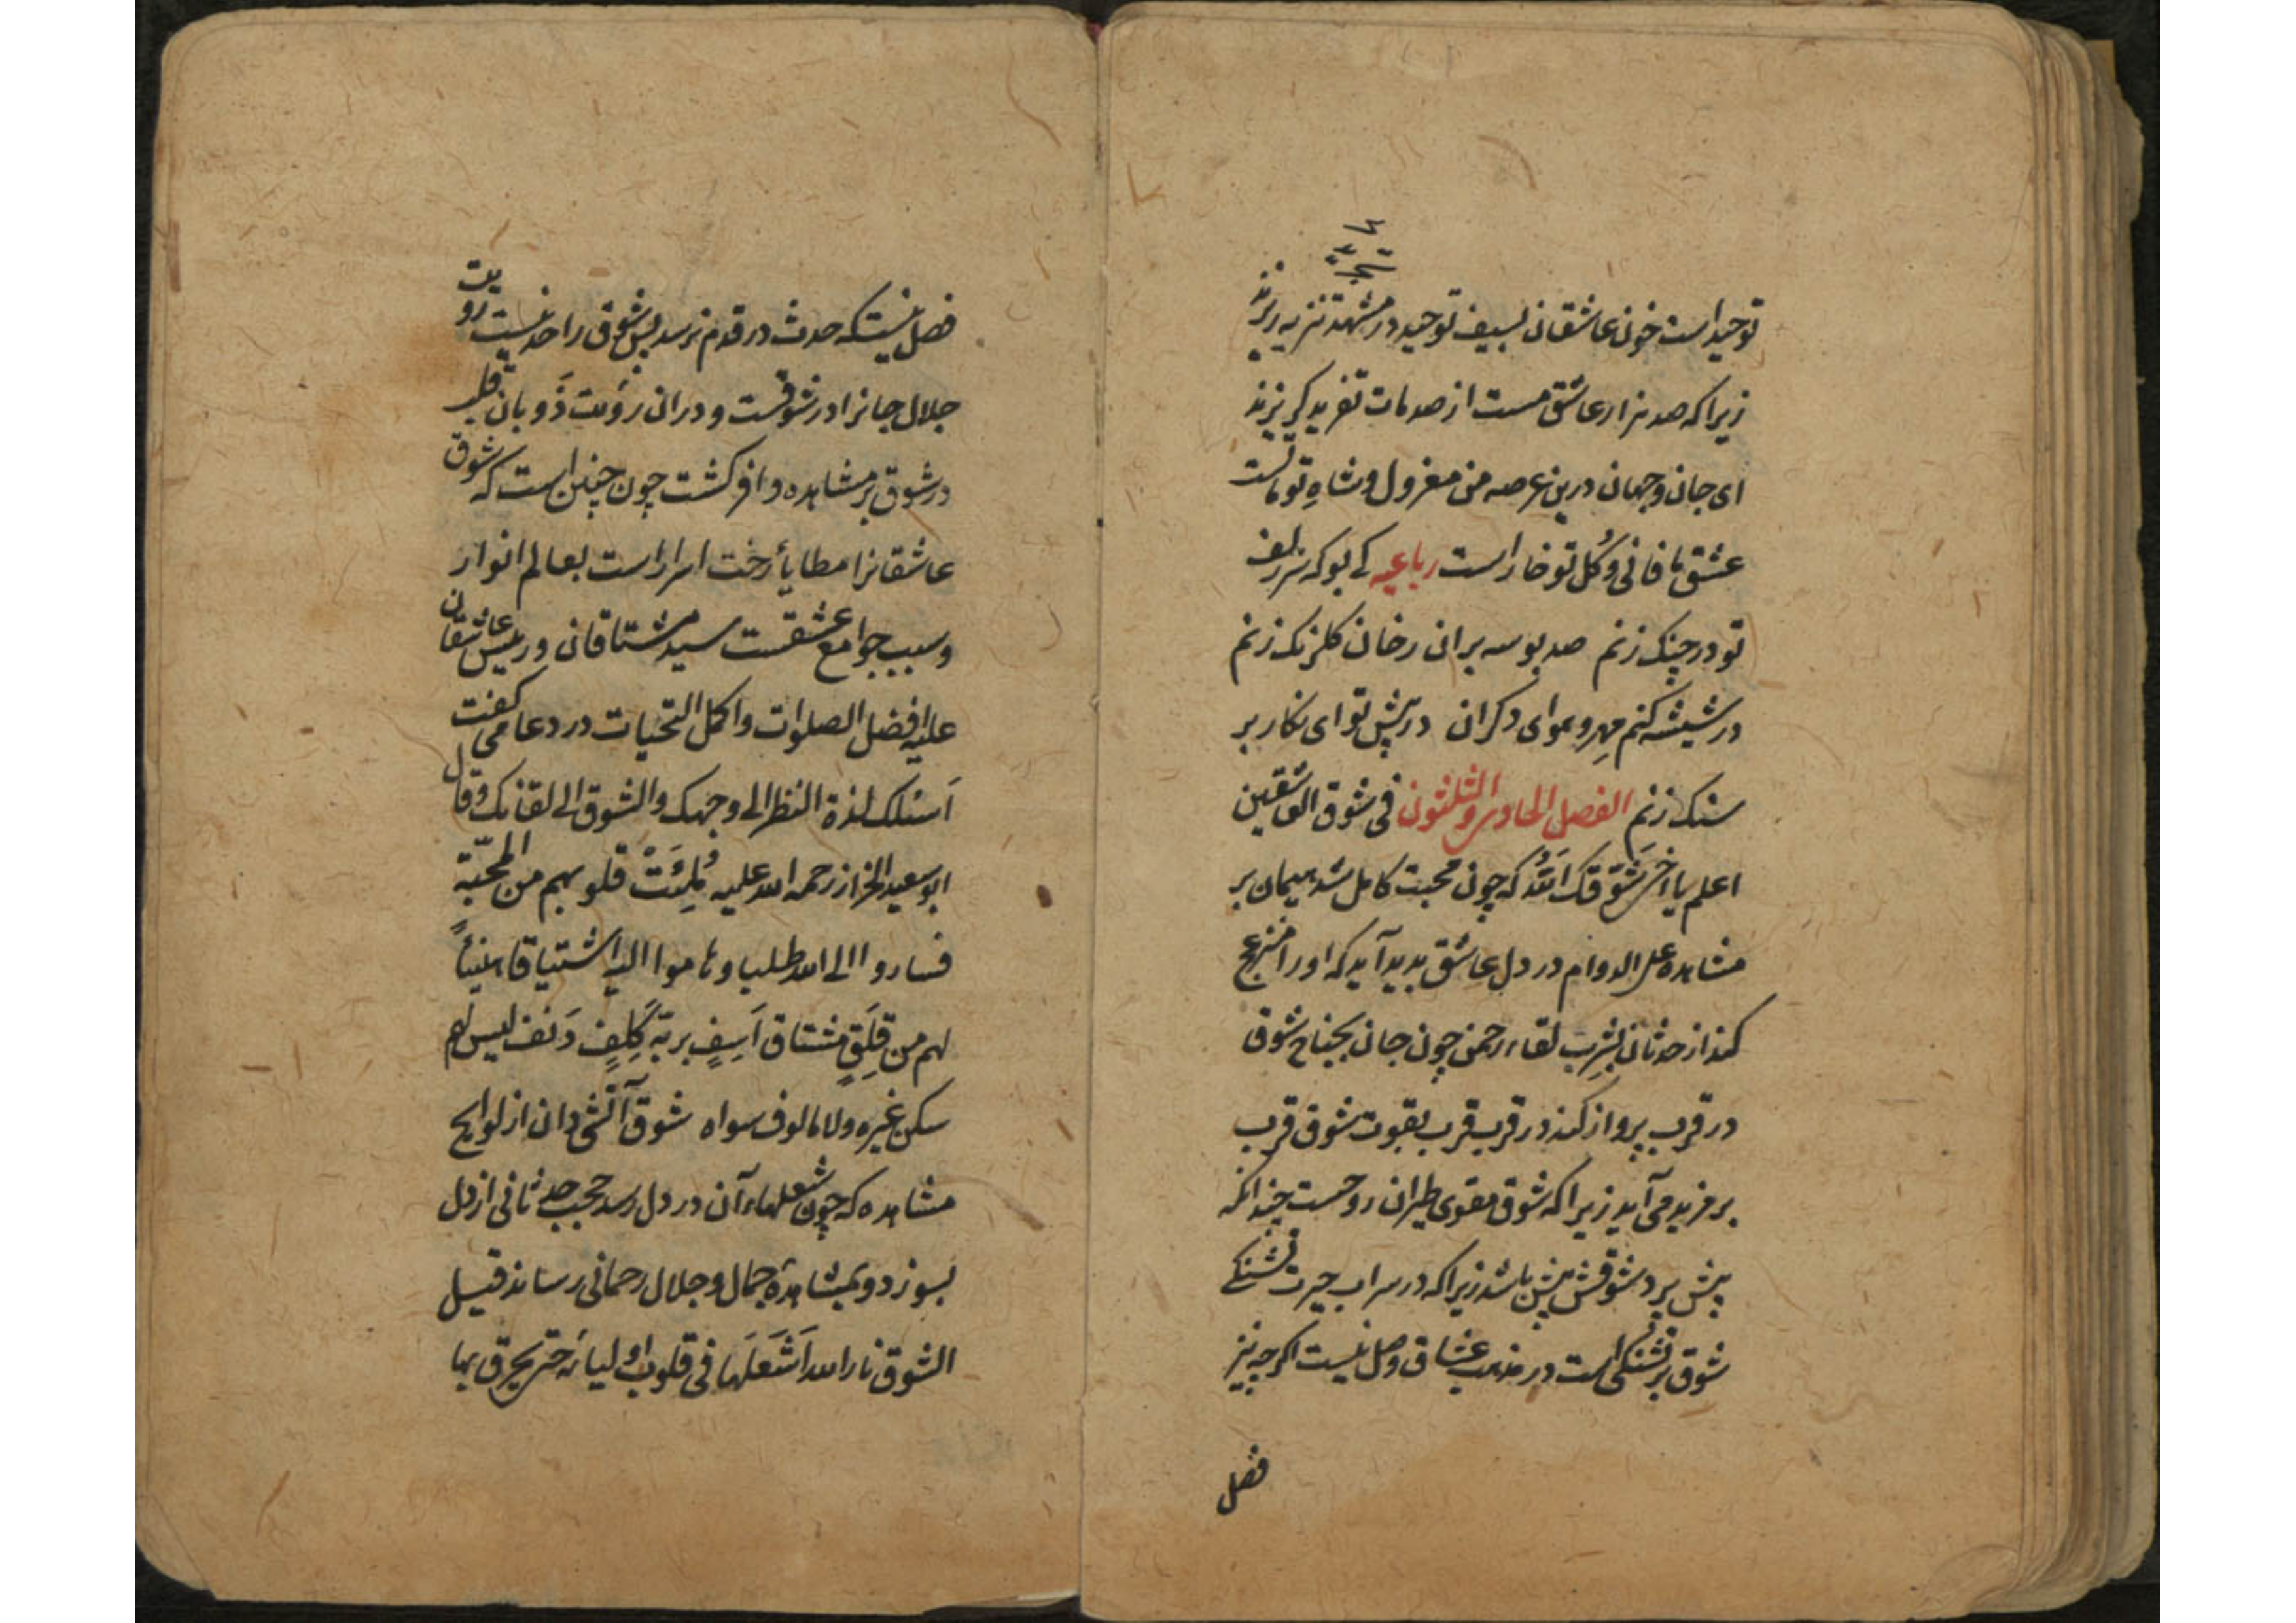 توحید است خون عاشقان بسیف توحید در مشهد تنزیه ریزند
زیرا که صد هزار عاشق مست از صدمات تفرید کریزند
ای جان و جهان درین عرصه من معزول و شاه تو ماست
عشق ما فانی و کل تو خار است رباعیه کی بو که سر زلف
تو در چنک زنم صد بوسه بران رخان کلرنک زنم
در شیشه کنم مهر و هوای دکران در پیش تو ای نکار بر
سنک زنم الفصل الحادی و الثلثون فی شوق العاشقین
اعلم یا اخی شوقک الله که چون محبت کامل شد هیمان بر
مشاهده علی الدوام در دل عاشق پدید آید که او را منزعج
کند از حدثان بشرب لقاء رحمن چون جان بجناح شوق
در قرب پرواز کند در قرب قرب بقوت شوق قرب
بر مزید می آید زیرا که شوق مقوی طیران روحست چندانکه
پیش پرد شوقش پیش باشد زیرا که در سراب حیرت تشنکی
شوق بر تشنکی است در مذهب عشاق وصل نیست اکرچه نیز
فصل
فصل نیست که حدث در قدم نرسد پس شوق را حد نیست رویت
جلال جانرا در شوقست و دران رؤیت ذوبان قلب
در شوق بر مشاهده وافر کشت چون چنین است که شوق
عاشقانرا مطایأ رخت اسرار است بعالم انوار
و سبب جوامع عشقست سید مشتاقان و رییس عاشقان
علیه افضل الصلوات و اکمل التحیات در دعا می کفت
اسئلک لذة النظر الی وجهک و الشوق الی لقائک و قال
ابو سعید الخراز رحمه الله علیه مُلِئَتْ قلوبهم من المحبّة
فساروا الی الله طلبا و هاموا الیه اشتیاقا هنیئاً
لهم من قَلَقٍ مشتاق اَسِفٍ بربّه کَلِفٍ دَنف لیس لهم
سکن غیره و لا مالوف سواه شوق آتشی دان از لوایح
مشاهده که چون شعلهاء آن در دل رسد حجب حدثانی از دل
بسوزد و بمشاهدهٔ جمال و جلال رحمانی رساند قیل
الشوق نار الله اَشعَلَها فی قلوب اولیائه حتی یحرق بها